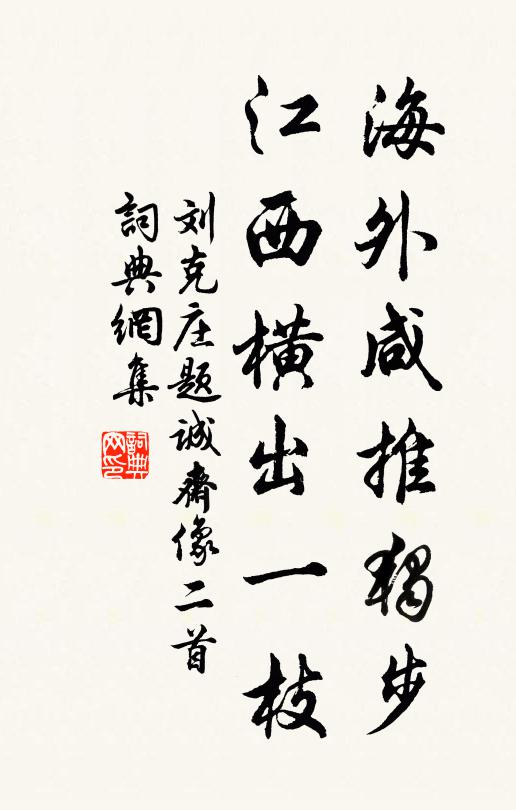 海外咸推獨步
江西橫出一枝
刘克庄题诚齋像二首
詞典網集
詞典網印